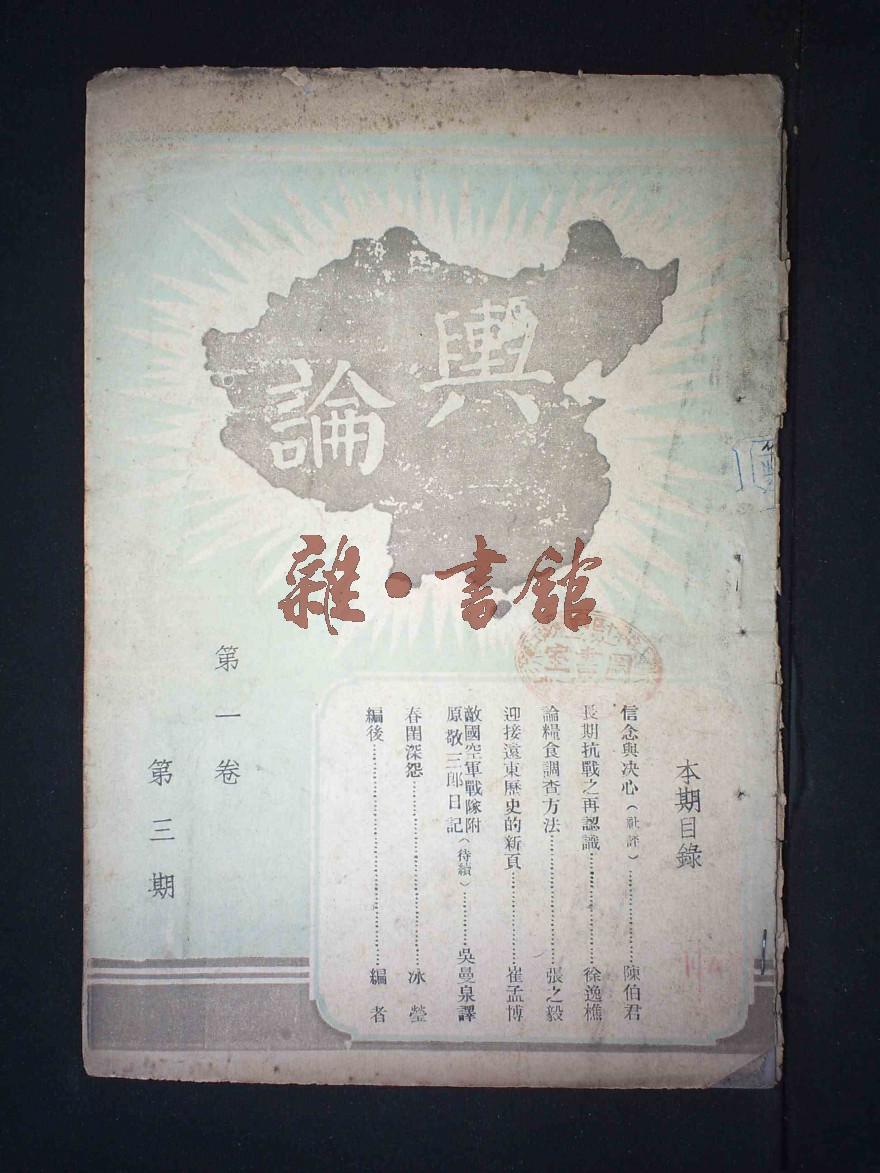 輿論
雜·書館
第一卷
第三期
本期目錄
信念與决心(社評)…………………陳伯君
長期抗戰之再認識…………………徐逸樵
論糧食調查方法…………………張之毅
迎接遠東歷史的新頁…………………崔孟博
敵國空軍戰隊附
原敬三郎日記(待續)…………吳曼泉譯
春閨深怨…………………冰瑩
編後…………………編者